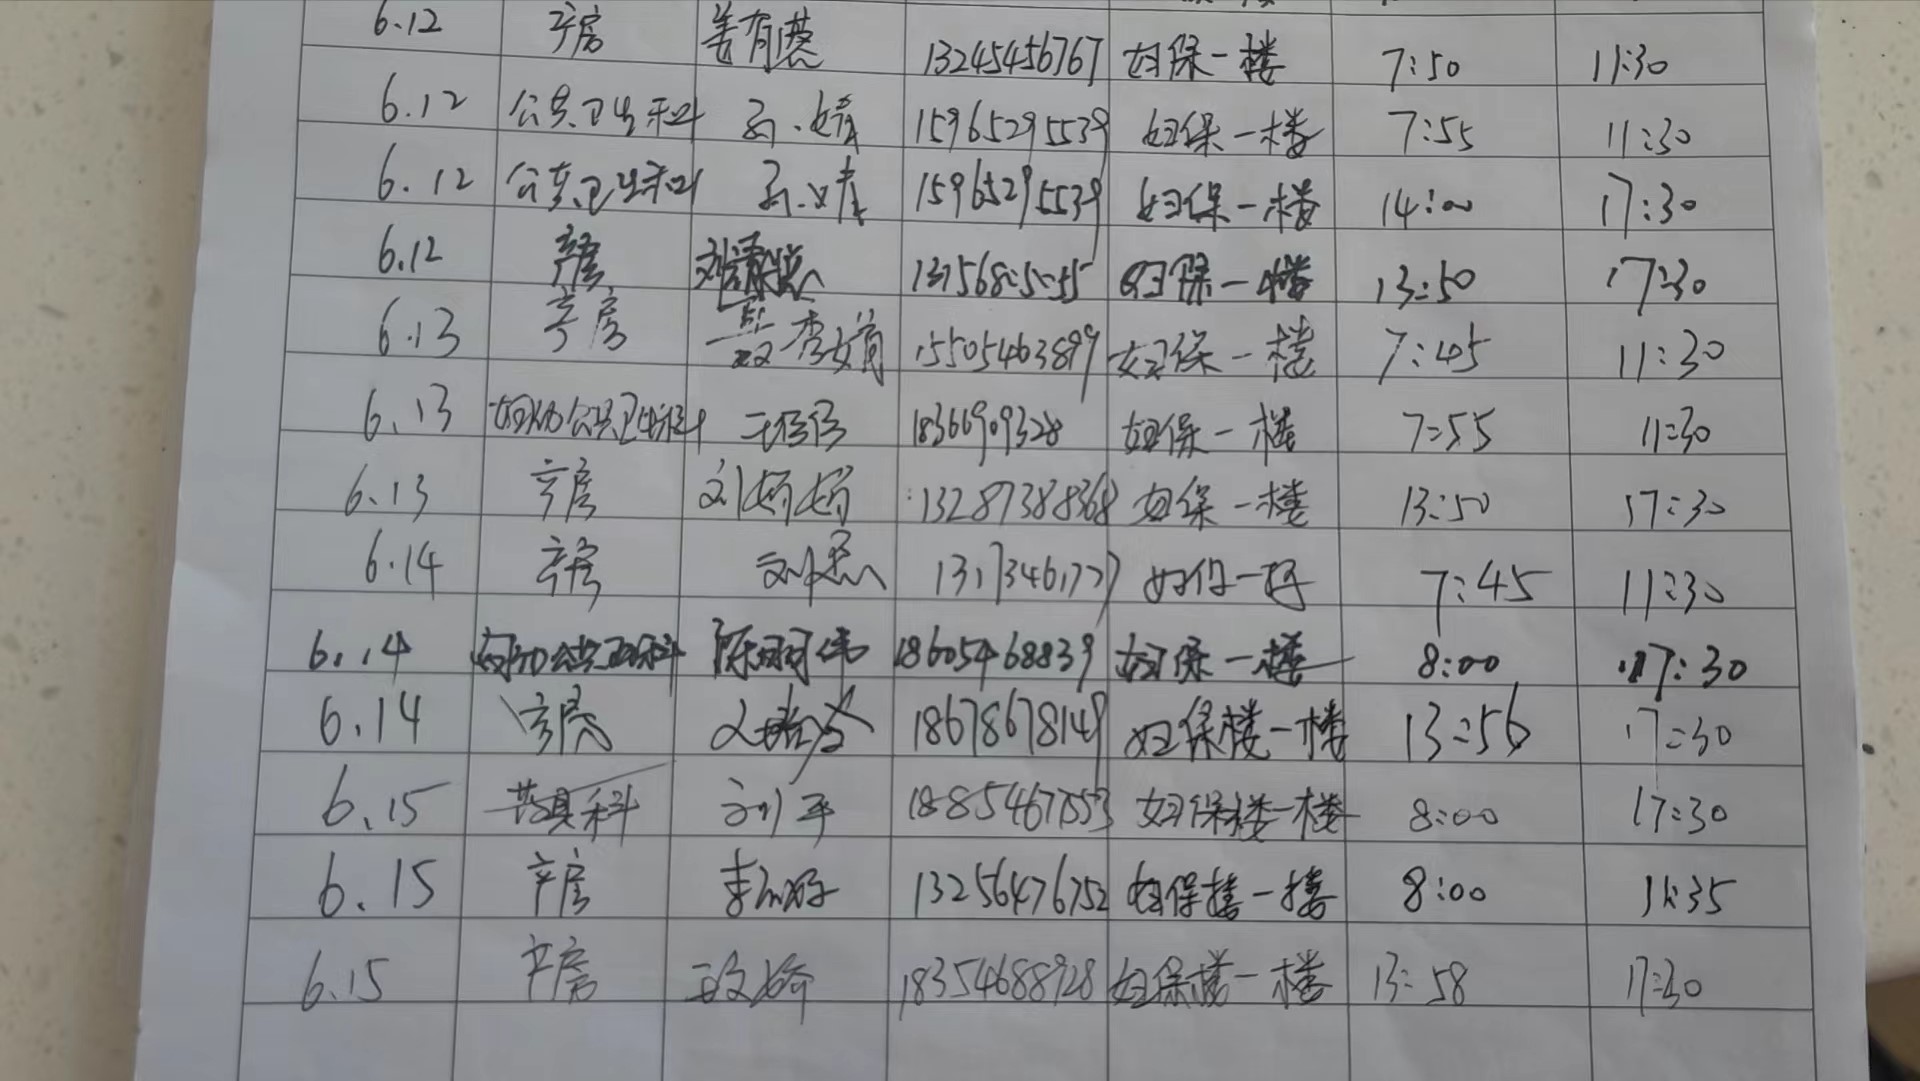 6.12 产房 姜有慧 13245456767 妇保一楼 7:50 11:30
6.12 公共卫生科 孙婧 15965295539 妇保一楼 7:55 11:30
6.12 公共卫生科 孙婧 15965295539 妇保一楼 14:00 17:30
6.12 产房 妇保一楼 13:50 17:30
6.13 产房 李媛 15505463899 妇保一楼 7:45 11:30
6.13 妇幼公共卫生科 王仔仔 18366909328 妇保一楼 7:55 11:30
6.13 产房 刘娇娇 13287388368 妇保一楼 13:50 17:30
6.14 产房 妇保一楼 7:45 11:30
6.14 妇幼公共卫生科 陈丽伟 18605468839 妇保一楼 8:00 17:30
6.14 产房 18678678149 妇保楼一楼 13:56 17:30
6.15 刘平 妇保楼一楼 8:00 17:30
6.15 产房 13256476752 妇保楼一楼 8:00 11:35
6.15 产房 18354688928 妇保楼一楼 13:58 17:30